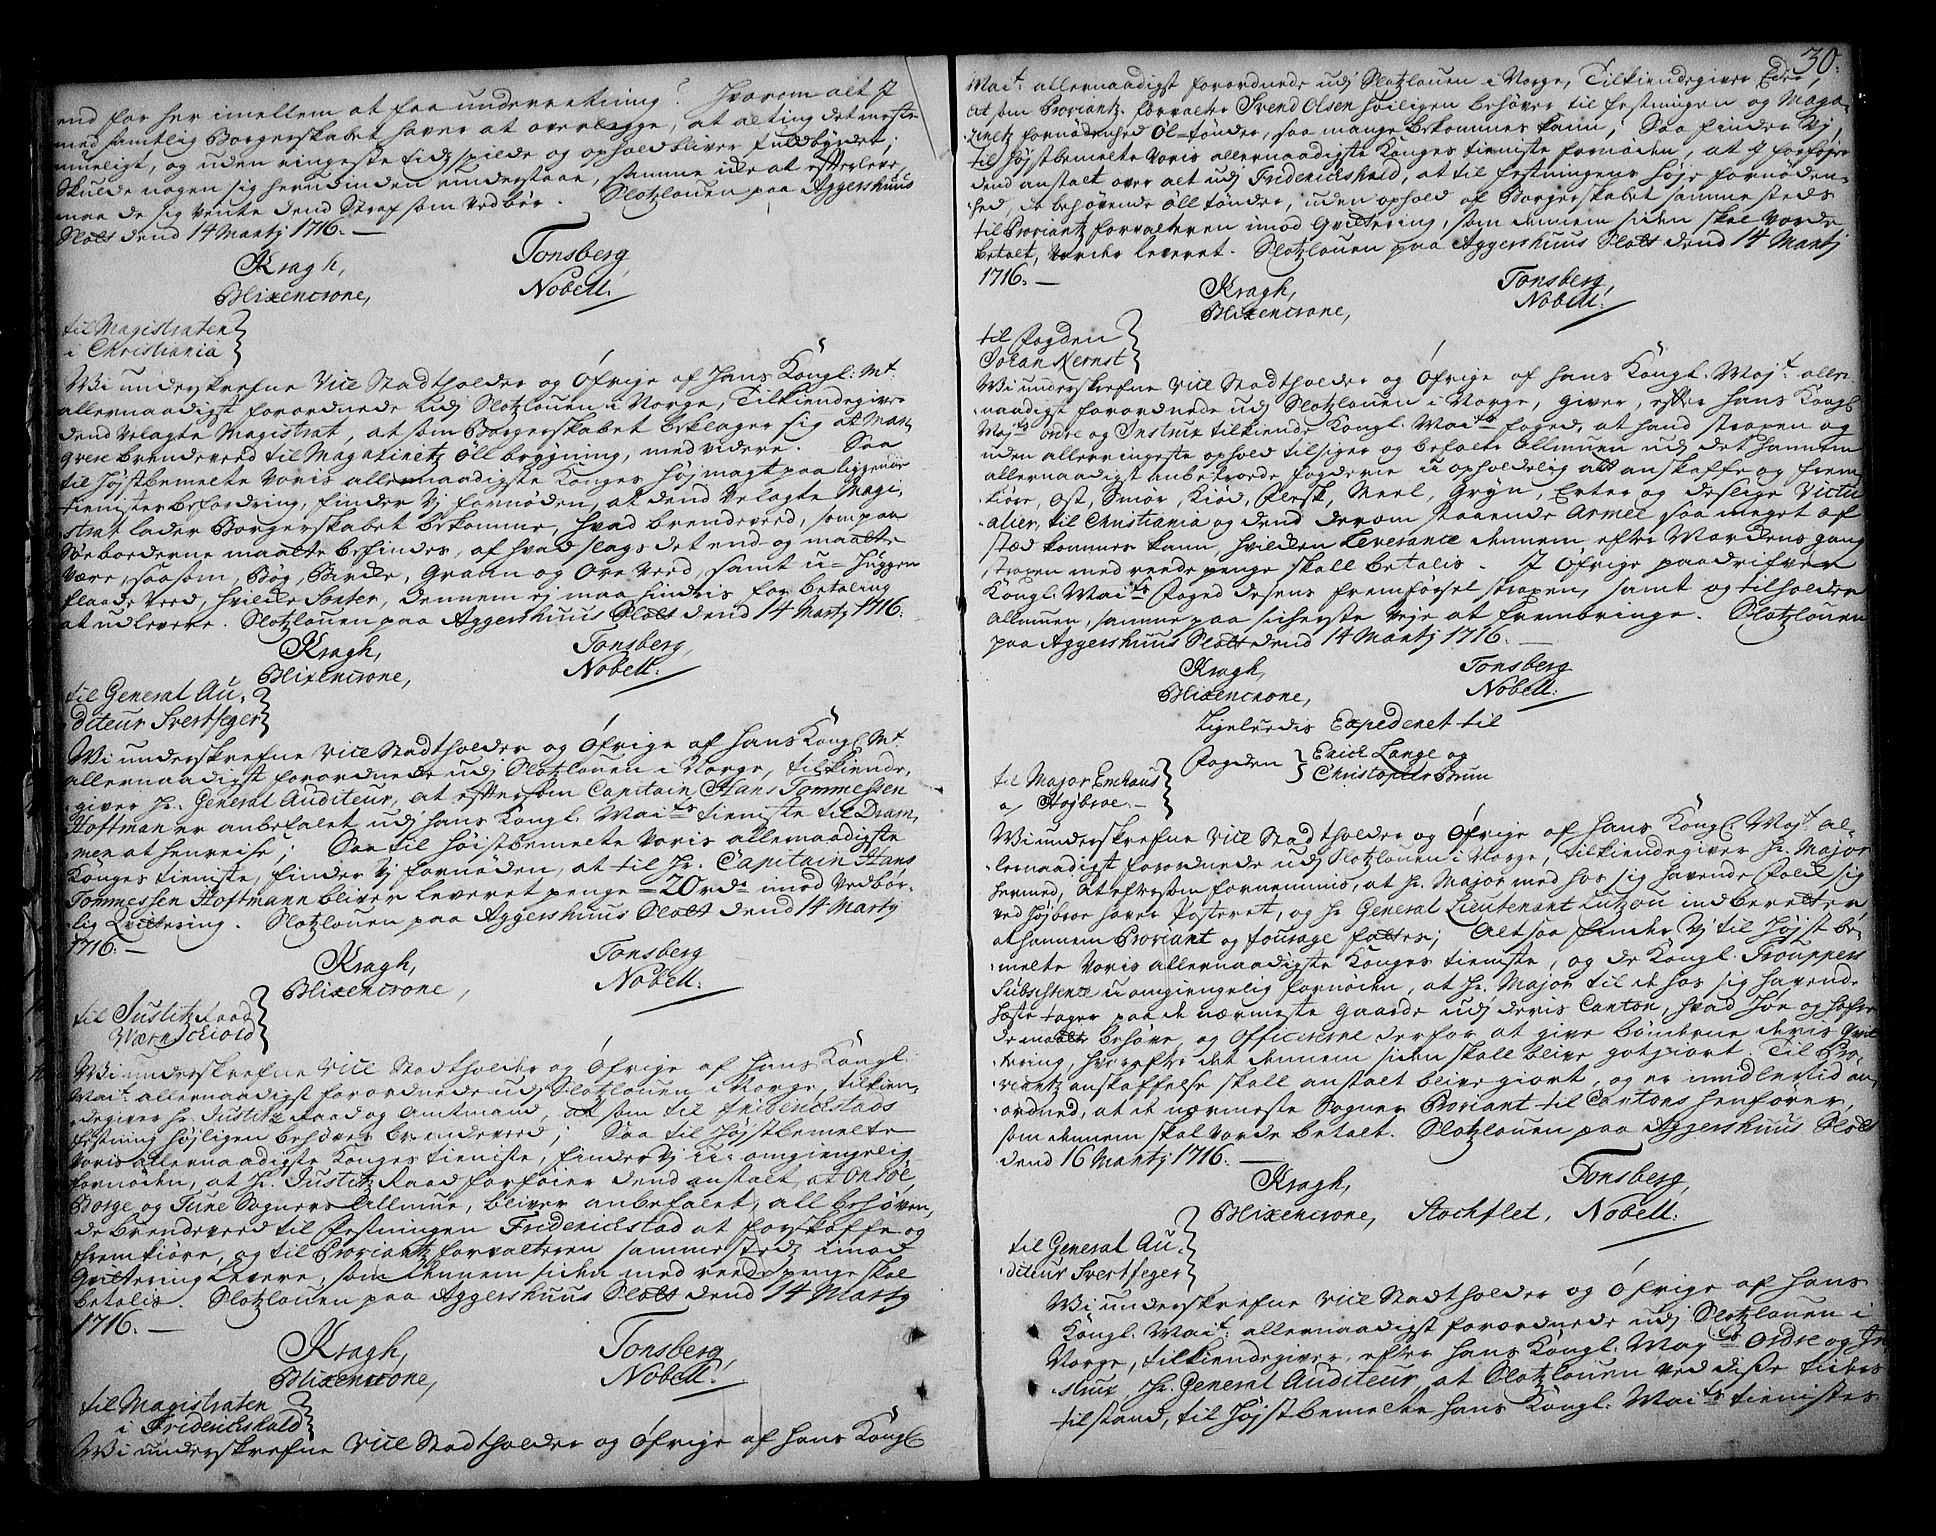 end for her imellem at faa underretning? Hvorom alt I
med samtlig Borgerskabet haver at overlegge, at alting det meste
mueligt, og uden ringeste tidspilde og ophold bliver fuldbyrdet;
Skulde nogen sig herudinden understaae, samme icke at efterleve,
maa de sig vente dend Straf som vedbør. Slotzlouen paa Aggershuus
Slott dend 14 Martj 1716.
Kragh, Tonsberg
Blixencrone, Nobell.
til Magistraten
i Christiania
Wi underskrefne Vice Stadtholder og Øfrige af Hans Kongl: Mt.
allernaadigst forordnede udj Slotzlouen i Norge, Tilkiendegiver
dend velagte Magistrat, at som Borgerskabet beklager sig at Man-
gvere brendeveed til Magatzinetz Öll brygning, med videre. Saa
til Højstbemelte Voris allernaadigste Konges Høj magt paaliggende
tienistes befordring, finder Vj fornøden, at dend velagte Magi,
strat lader Borgerskabet bekomme, hvad brendeveed, som paa
Søeborderne maatte befindes, af hvad slags det end og maatte
være, saasom, Bøg, Bircke, Grann og Ore Veed, samt u-huggen
flaade veed, hvilcke Sorter, dennem ej maa hindris for betaling
at udlevere. Slotzlouen paa Aggershuus Slott dend 14 Martj 1716.
Kragh, Tonsberg,
Blixencrone, Nobell.
til General Au-
diteur Svertfeger
Wi underskrefne Vice Stadtholder og Øfrige af Hans Kongl Mt.
allernaadigst forordnede udj Slotzlouen i Norge, tilkiende,
giver Hr. General Auditeur, at eftersom Capitain Hans Tommessen
Hoffman er anbefalet udj hans Kongl. Maits tieniste til Dram,
men at henreise; Saa til Højstbemelte Voris allernaadigste
Konges tieniste, finder Vj fornøden, at til Hr. Capitain Hans
Tommessen Hoffmann bliver leveret penge 20 rdr imod vedbør-
lig Qvittering. Slotzlouen paa Aggershuus Slott dend 14 Martj
1716.
Kragh, Tonsberg
Blixencrone, Nobell.
til Justitz Raad
Wærnschiold
Wi underskrefne Vice Stadtholder og Øfrige af Hans Kongl.
Mait. allernaadigst forordnede udj Slotzlouen i Norge, tilkien-
degiver Hr. Justitz Raad og Amtmand, at som til Friderichstads
festning højligen behøves brendeveed; Saa til Højstbemelte
Voris allernaadigste Konges tieniste, finder Vj u-omgiengelig
fornøden, at Hr. Justitz Raad forføier dend anstalt, at Onsøe,
Borge og Tune Sogners Allmue, bliver anbefalet, all behøven,
de brendeveed til festningen Friderichstad at forskaffe og
fremkiøre, og til Proviantz forvalteren sammestedz imod
Qvittering levere, som dennem siden med reede penge skal
betalis. Slotzlouen paa Aggershuus Slott dend 14 Martj
1716.
Kragh, Tonsberg,
Blixencrone, Nobell.
til Magistraten
i Friderichshald
Wi underskrefne Vice Stadtholder og Øfrige af Hans Kongl
30.
Mait. allernaadigst forordnede udj Slotzlouen i Norge, Tilkiendegiver Eder,
at som Proviantz forvalter Svend Olsen høiligen behøver til festningen og Maga-
zinetz fornødenhed Öl-tønder, saa mange bekommes kann; Saa finder Vj,
til Højstbemelte Voris allernaadigste Konges tieniste fornøden, at I forføjer
dend anstalt over alt udj Friderichshald, at til festningens høje fornøden-
hed, de behøvende öll tønder, uden ophold af Borgerskabet sammesteds
til Proviantz forvalteren imod Qvittering, som dennem siden skal vorde
betalt, vorder leveret. Slotzlouen paa Aggershuus Slott dend 14 Martj
1716.
Kragh, Tonsberg,
Blixencrone, Nobell.
til Fogden
Johan Nernst
Wi underskrefne Vice Stadtholder og Øfrige af Hans Kongl. Majt. aller
naadigst forordnede udj Slotzlouen i Norge, giver, efter Hans Kongl
Majts ordre og Instrux tilkiende Kongl. Maits foged, at hand straxen og
uden allerringeste ophold tilsiger og befaler Allmuen udj det hannem
allernaadigst anbetroede fogderie uopholdelig at anskaffe og frem
kiøre, Ost, Smør, Kiød, Flesk, Meel, Gryn, Erter og deslige Victu
alier, til Christiania og dend derom staaende Armee saa meget af
sted kommer kann, hvilcken Leverance dennem efter Wordens gang
straxen med reede penge skall betalis. I Øfrige paadrifver
Kongl. Maits Foged desens fremførsel straxen, samt og tilholder
allmuen, samme paa sicherste veje at frembringe. Slotzlouen
paa Aggershuus Slott dend 14 Martj 1716.
Kragh, Tonsberg
Blixencrone, Nobell.
Ligeleedis Expederet til
Fogden Erick Lange og
Christopher Brun
til Major Enchaus
a Højbroe.
Wi underskrefne Vice Stadtholder og Øfrige af Hans Kongl. Majt. al-
lernaadigst forordnede udj Slotzlouen i Norge, tilkiendegiver Hr. Major
hermed, at eftersom fornemmis, at Hr. Major med hos sig havende Folck sig
ved Højbroe haver posteret, og Hr. General Lieutenant Lutzou indberetter
at hannem Proviant og fourage fattes; Alt saa finder Vj til Højstbe-
melte Voris allernaadigste Konges tieniste, og de Kongl. Trouppers
Subsistence uomgiengelig fornøden, at Hr. Major til de hos sig havende
Heste tager paa de nærmeste gaarde udj deris Canton, hvad høe og hafre
de maatte behøve, og Officiererne derfor at give bønderne deris Qvit
tering, hvorefter det dennem siden skall blive gotgiort. Til Pro-
viantz anskaffelse skall anstalt blive giort, og er imidlertid an,
ordned, at de nærmeste Sogner Proviant til Cantons henfører,
som dennem skal vorde betalt. Slotzlouen paa Aggershuus Slott
dend 16 Martj 1716.
Kragh, Tonsberg,
Blixencrone, Stochflet, Nobell.
til General Au-
diteur Svertfeger
Wi underskrefne Vice Stadtholder og Øfrige af Hans
Kongl. Mait. allernaadigst forordnede udj Slotzlouen i
Norge, tilkiendegiver, efter Hans Kongl. Mayts Ordre og In
strux, Hr. General Auditeur, at Slotzlouen ved disse tiders
tilstand, til Højstbemelte Hans Kongl. Maits tienistes